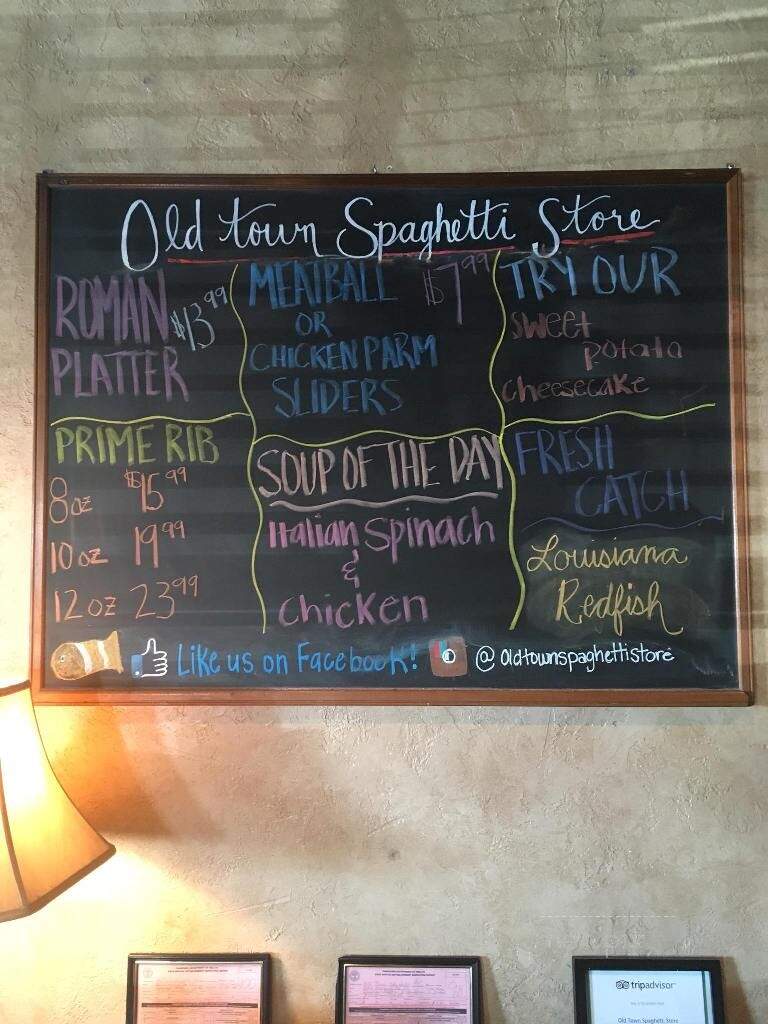 Old town Spaghetti Store
ROMAN
PLATTER
$13.99
MEATBALL $7.99
OR
CHICKEN PARM
SLIDERS
TRY OUR
Sweet
potato
Cheesecake
PRIME RIB
8 oz $15.99
10 oz 19.99
12 oz 23.99
SOUP OF THE DAY
Italian Spinach
&
Chicken
FRESH
CATCH
Louisiana
Redfish
Like us on Facebook! @ Oldtownspaghettistore
tripadvisor
Old Town Spaghetti Store